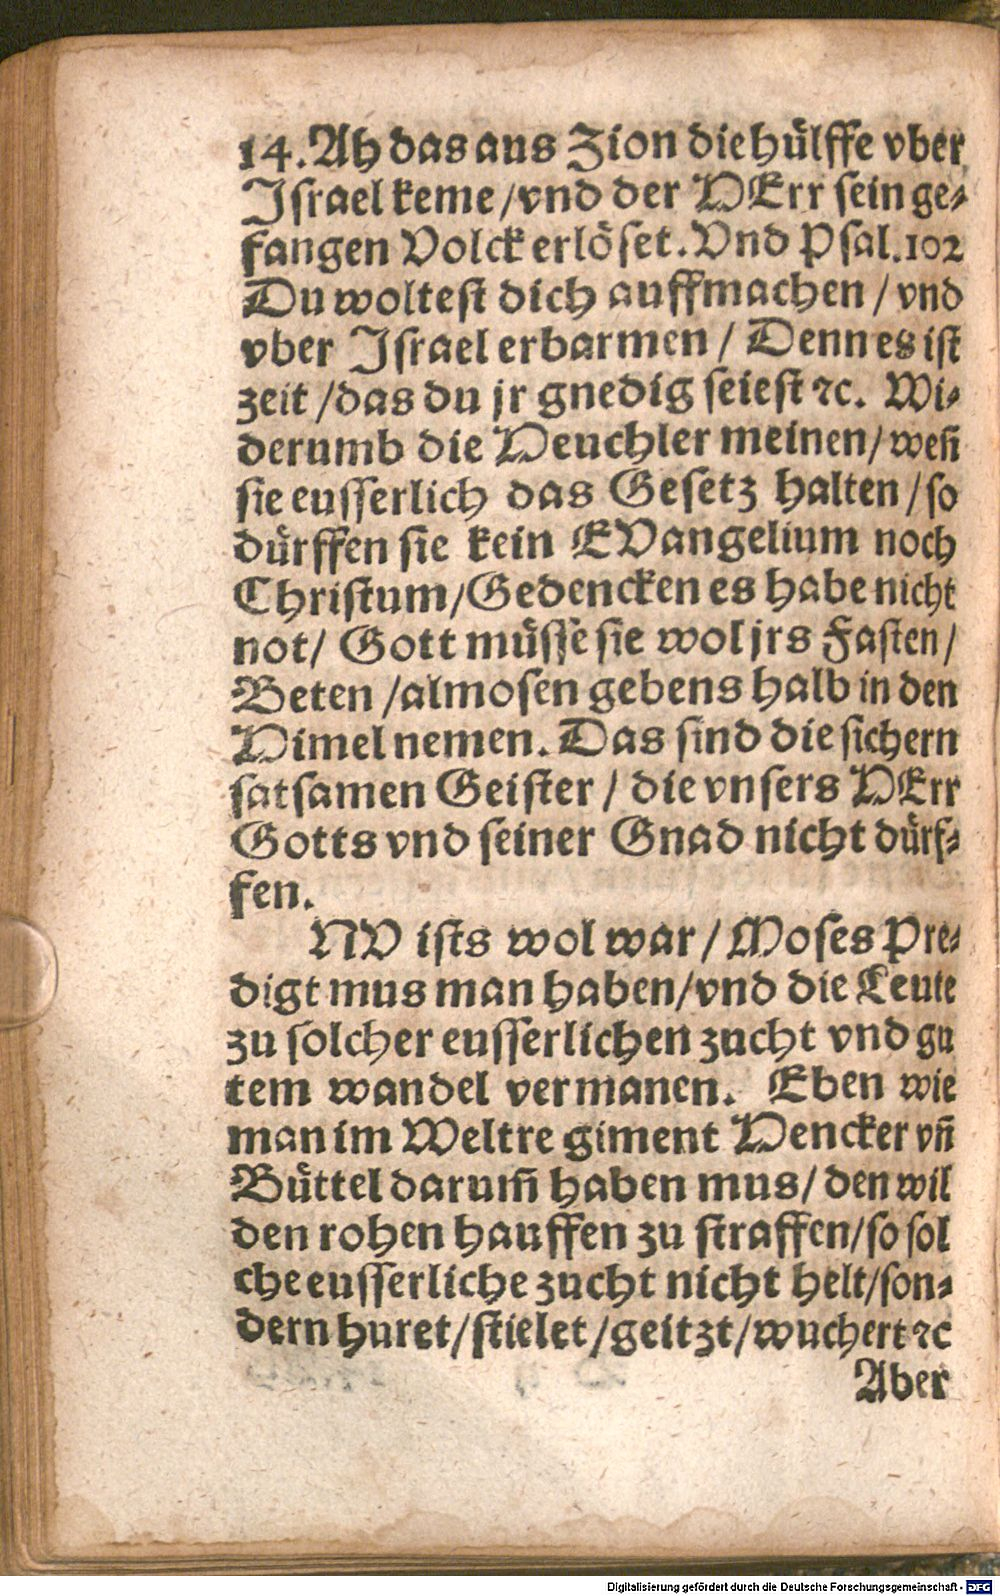 14. Ah das aus Zion die hülffe vber
Israel keme / vnd der HErr sein ge-
fangen Volck erlöset. Vnd Psal. 102
Du woltest dich auffmachen / vnd
vber Israel erbarmen / Denn es ist
zeit / das du jr gnedig seiest ꝛc. Wi-
derumb die Heuchler meinen / weñ
sie eusserlich das Gesetz halten / so
dürffen sie kein EVangelium noch
Christum / Gedencken es habe nicht
not / Gott müsse sie wol jrs Fasten /
Beten / almosen gebens halb in den
Himel nemen. Das sind die sichern
satsamen Geister / die vnsers HErr
Gotts vnd seiner Gnad nicht dürf-
fen.
NV ists wol war / Moses Pre-
digt mus man haben / vnd die Leute
zu solcher eusserlichen zucht vnd gu
tem wandel vermanen. Eben wie
man im Weltre giment Hencker vñ
Büttel darum̃ haben mus / den wil
den rohen hauffen zu straffen / so sol
che eusserliche zucht nicht helt / son-
dern huret / stielet / geitzt / wuchert ꝛc
Aber
Digitalisierung gefördert durch die Deutsche Forschungsgemeinschaft - DFG